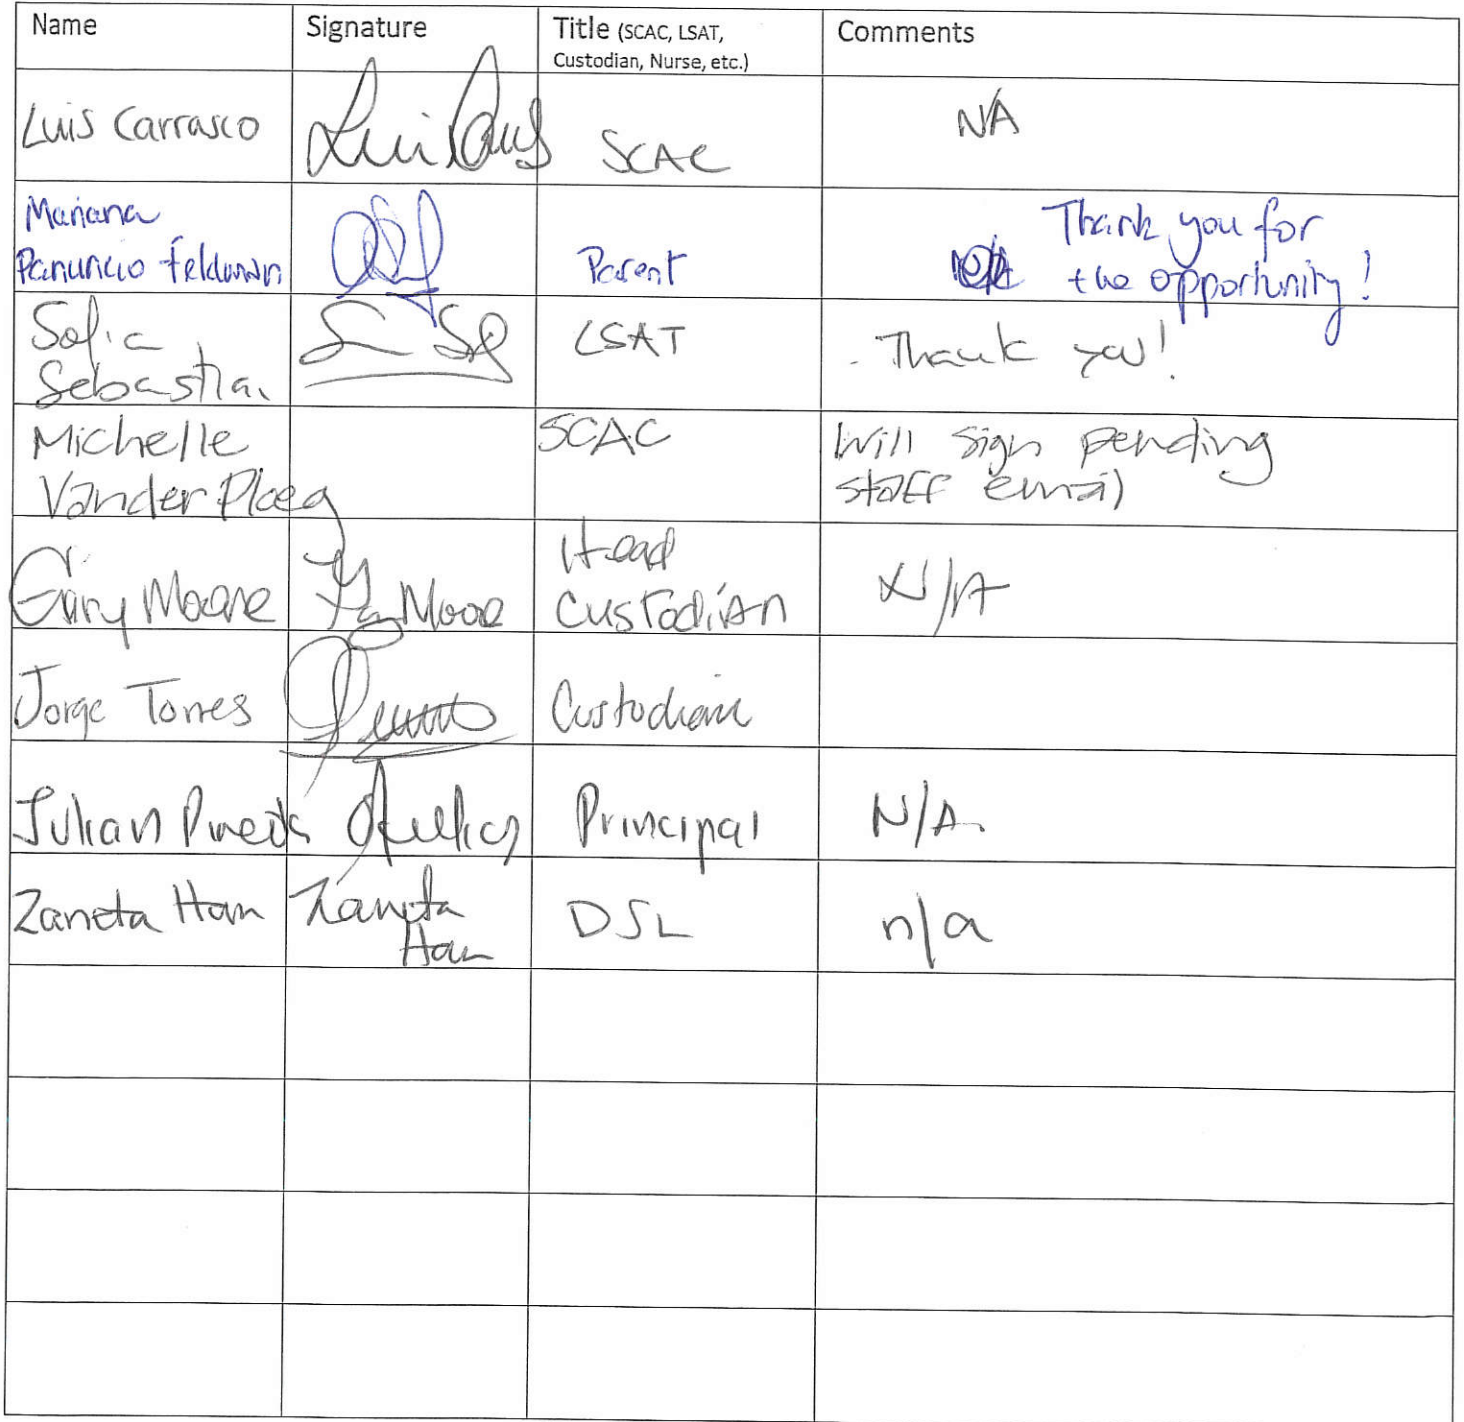 Name Signature Title (SCAC, LSAT, Comments
Custodian, Nurse, etc.)
Luis Carrasco SCAC NA
Mariana
Panuncio Feldman Parent
Thank you for
the opportunity!
Sofia
Sebastian LSAT Thank you!
Michelle
Vander Ploeg SCAC
Will sign pending
staff email
Gary Moore Gary Moore Head
Custodian N/A
Jorge Torres Custodian
Julian Principal N/A
Zaneta Ham Zaneta
Ham DSL n/a